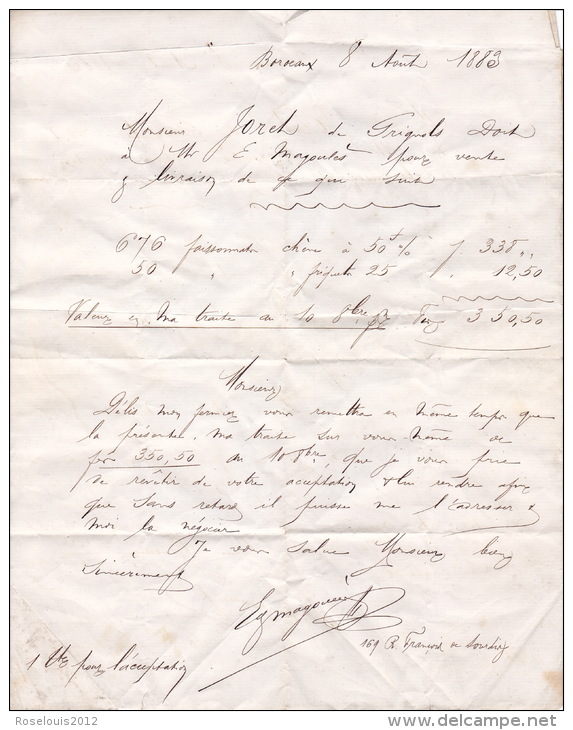 Bordeaux 8 Août 1883
Monsieur Jorch de Grignols Doit
à Mr E Magouté pour vente
& livraison de ce qui suit
676 faissonnats chêne à 50 % f. 338 "
50 " " 25 " 12,50
Valeur en ma traite au 10 8bre 350,50
Monsieur
mon fermier vous remettra en même temps que
la présente, ma traite sur vous même de
350,50 au 10 8bre, que je vous prie
de revêtir de votre acceptation & lui rendre afin
que sans retard il puisse me l'adresser &
moi la négocier
Je vous salue Monsieur bien
Sincèrement
169 R. François de Sourdis
1 pour l'acceptation
Roselouis2012
www.delcampe.net